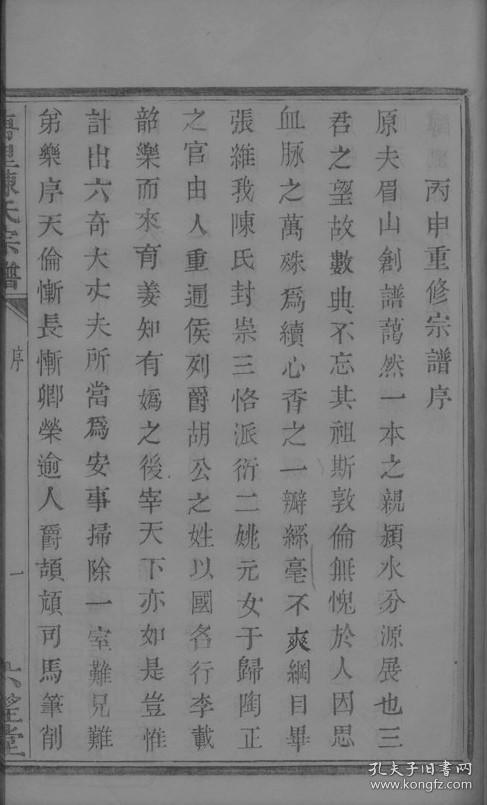 丙申重修宗譜序
原夫眉山創譜藹然一本之親潁水分源展也三
君之望故數典不忘其祖斯敦倫無愧於人因思
血脉之萬殊爲續心香之一瓣絲毫不爽綱目畢
張維我陳氏封崇三恪派衍二姚元女于歸陶正
之官由人重通侯列爵胡公之姓以國名行李載
韶樂而來育姜知有嬀之後宰天下亦如是豈惟
計出六奇大丈夫所當爲安事掃除一室難兄難
弟樂序天倫慚長慚卿榮逾人爵頡頏司馬筆削
里陳氏宗譜
序
一
孔夫子旧书网
www.kongfz.com